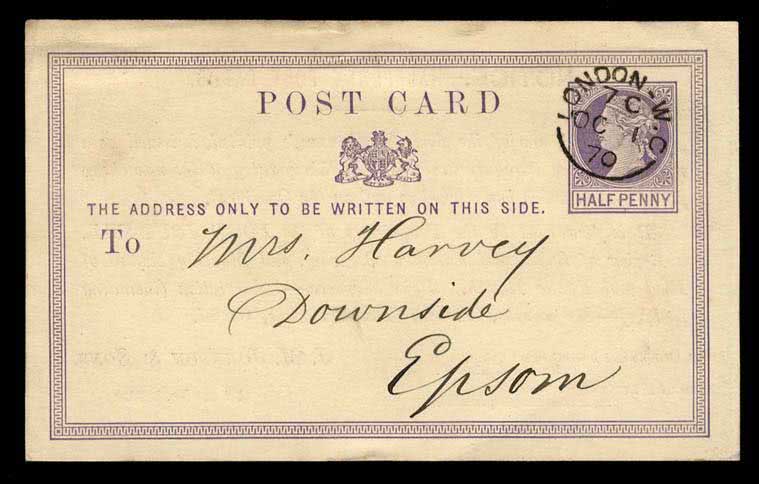 POST CARD
LONDON-W.C
7 C
OC 1
70
HALFPENNY
THE ADDRESS ONLY TO BE WRITTEN ON THIS SIDE.
To Mrs. Harvey
Downside
Epsom